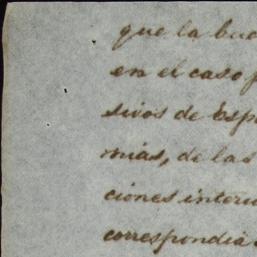 que la bue
en el caso p
sivos de Esp
mias, de las
ciones interv
correspondia